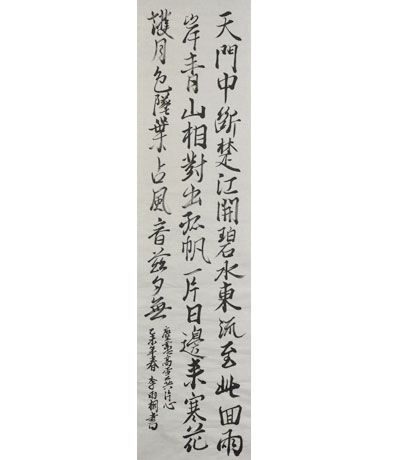 天門中斷楚江開碧水東流至此回兩
岸青山相對出孤帆一片日邊來寒花
護月色墜葉占風音茲夕無
塵慮高雲共片心
乙未年春 李雨桐書